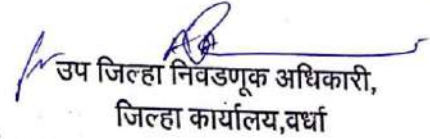 उप जिल्हा निवडणूक अधिकारी,
जिल्हा कार्यालय,वर्धा